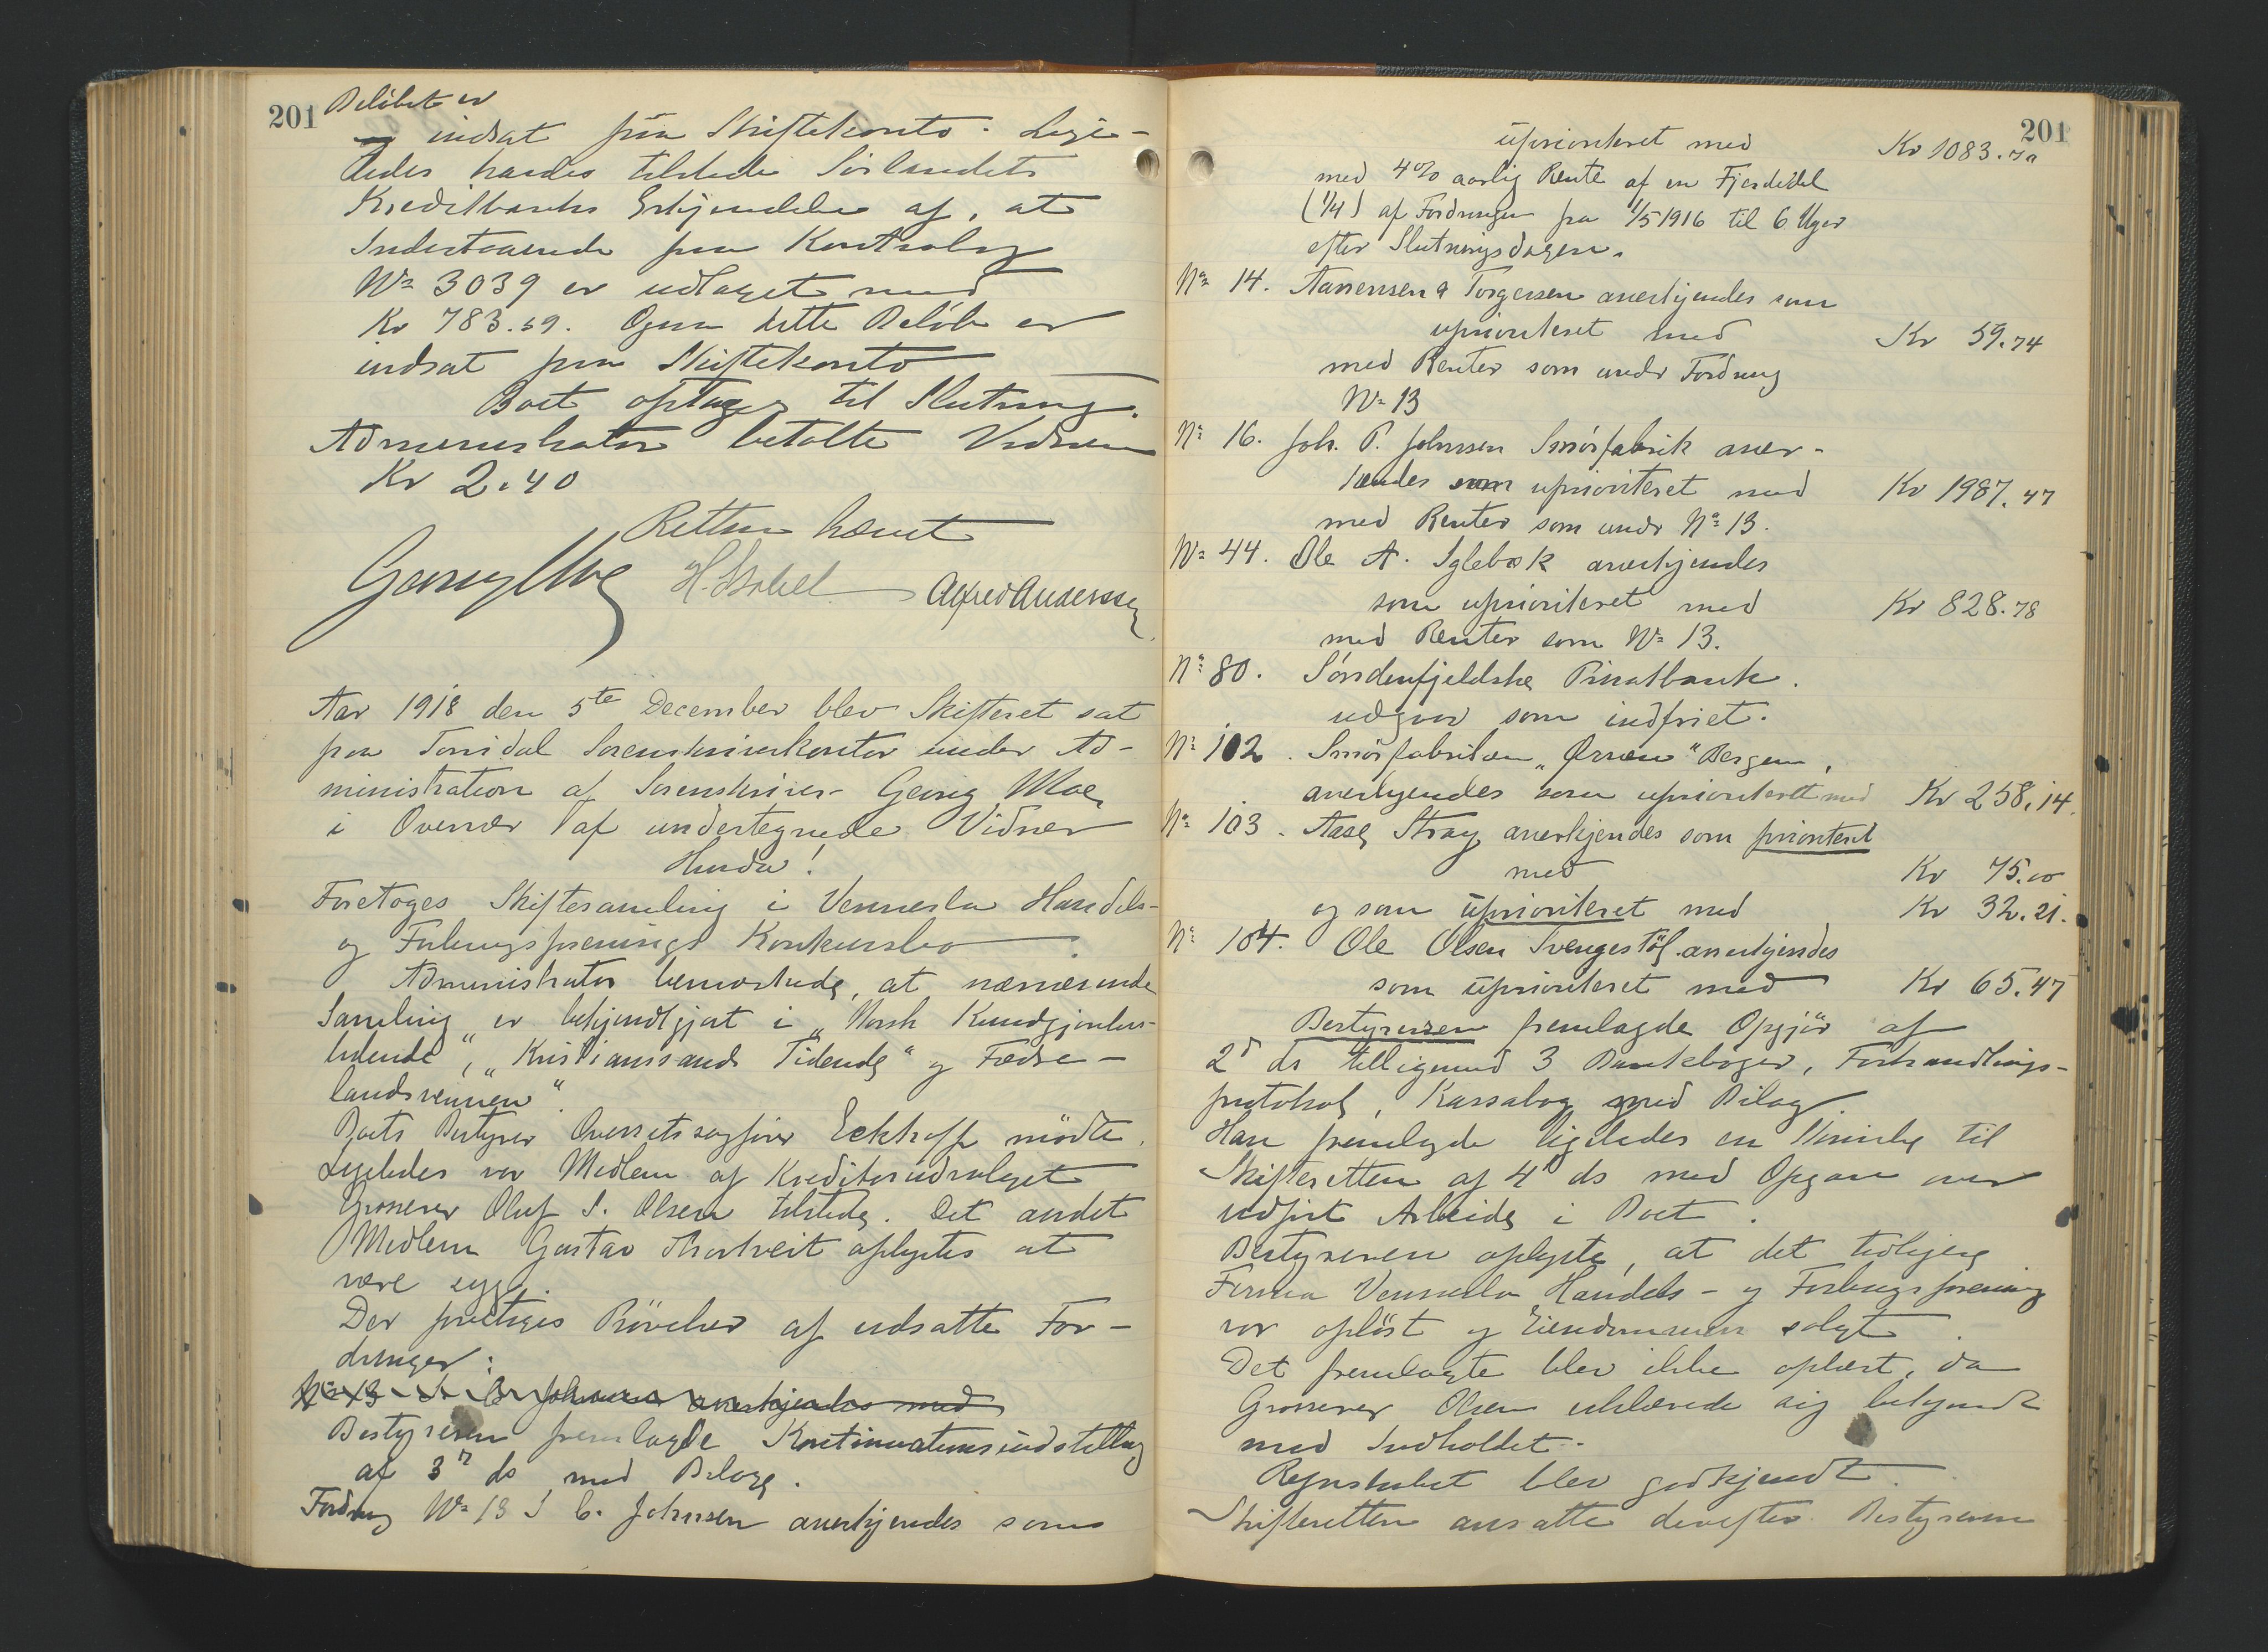 201
Beløbet er
indsat paa Skiftekonto. Lige-
ledes havdes tilstede Sörlandets
Kreditbanks Erkjendelse af, at
Indestaaende paa Kontrabog
No 3039 er udtaget med
Kr 783.59. Ogsaa dette Beløb er
indsat paa Skiftekonto
Boet optages til Slutning.
Administrator betalte Vidnerne
Kr 2.40
Retten hævet
Georg Moe H. Isabel Alfred Anderssen
Aar 1918 den 5te December blev Skifteret sat
paa Torridal Sorenskriverkontor under Ad-
ministration af Sorenskriver Georg Moe
i Overvær af undertegnede Vidner
Hvorda!
Foretoges Skiftesamling i Vennesla Handels-
og Forbrugsforenings Konkursbo
Administrator bemærkede, at nærværende
Samling er bekjendtgjort i "Norsk Kundgjørelses-
tidende", "Kristianssands Tidende" og Fædre-
landsvennen".
Boets Bestyrer Overretssagfører Eckhoff mödte.
Ligeledes var Medlem af Kreditorudvalget
Grosserer Oluf S. Olsen tilstede. Det andet
Medlem Gustav oplystes at
være syg.
Der foretoges Prövelse af udsatte For-
dringer:
No 13 J. C. Johnsen anerkjendes med
Bestyreren fremlagde Kontinuationsindstilling
af 3d ds med Bilag.
Fordring No 13 J C. Johnsen anerkjendes som
201
uprioriteret med Kr 1083.70
med 4% aarlig Rente af en Fjerdedel
(1/4) af Fordringen fra 1/5 1916 til 6 Uger
efter Slutningsdagen.
No 14. Aanensen & Torgersen anerkjendes som
uprioriteret med Kr 59.74
med Renter som under Fordring
No 13
No 16. Joh. P. Johnsen Smörfabrik aner-
kjendes som uprioriteret med Kr 1987.47
med Renter som under No 13.
No 44. Ole A. Iglebæk anerkjendes
som uprioriteret med Kr 828.78
med Renter som No 13.
No 80. Söndenfjeldske Privatbank.
udgaar som indfriet.
No 102. Smörfabriken "Ørnen" Bergen,
anerkjendes som uprioriteret med Kr 258.14.
No 103. Aase Stray anerkjendes som prioriteret
med Kr 75.00
og som uprioriteret med Kr 32.21.
No 104. Ole Olsen Svengestöl anerkjendes
som uprioriteret med Kr 65.47
Bestyreren fremlagde Opgjör af
2d ds tilligemed 3 Bankböger, Forhandlings-
protokol, Kassabog med Bilag.
Han fremlagde ligeledes en Skrivelse til
Skifteretten af 4d ds med Opgave over
udført Arbeide i Boet.
Bestyreren oplyste, at det tidligere
Firma Vennesla Handels- og Forbrugsforening
var oplöst og Eiendommen solgt.
Det fremlagte blev ikke oplæst, da
Grosserer Olsen erklærede sig bekjendt
med Indholdet.
Regnskabet blev godkjendt.
Skifteretten ansatte derefter Bestyrerens